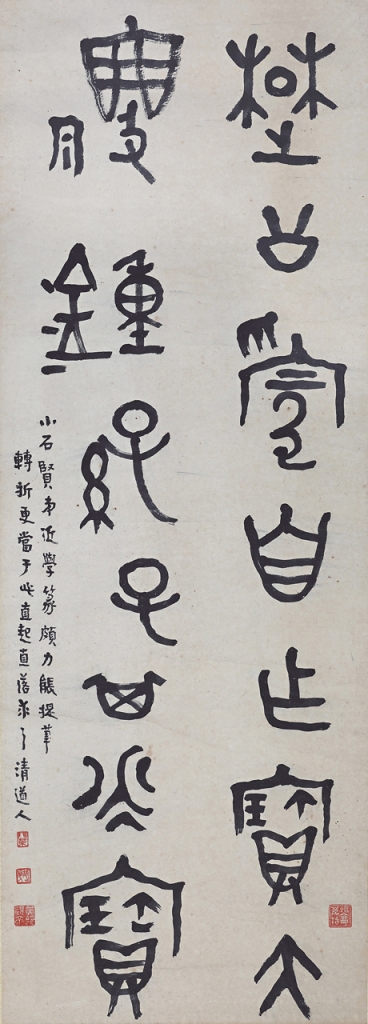 楚公自乍寶大
鐘孫子其永寶
小石賢弟近學篆頗力能提筆
轉折更當于此直起直落求之清道人